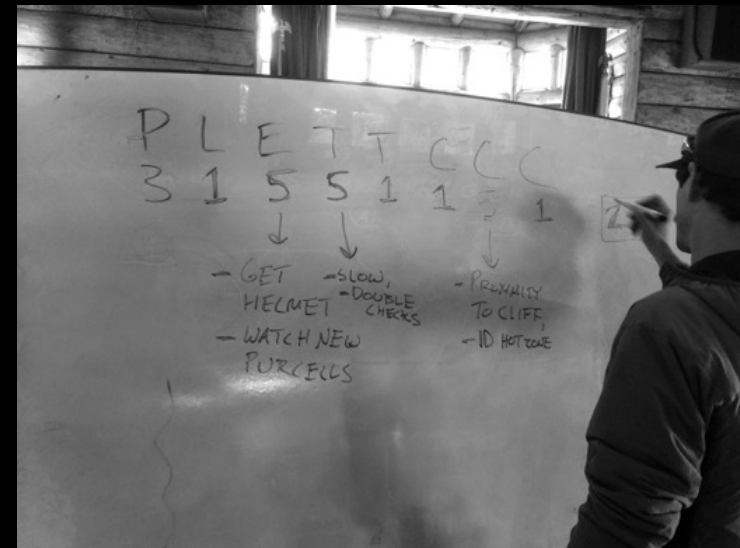 P L E T T C C C
3 1 5 5 1 1 5 1
- GET
HELMET
- WATCH NEW
PURCELLS
- SLOW,
- DOUBLE
CHECKS
- PROXIMITY
TO CLIFF,
- ID HOT ZONE